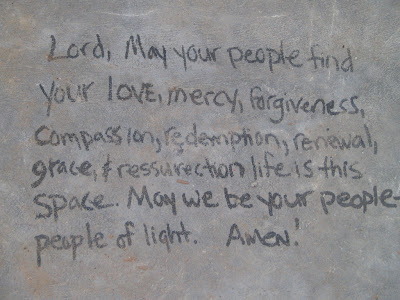 Lord, May your people find
your love, mercy, forgiveness,
compassion, redemption, renewal,
grace, & ressurection life is this
space. May we be your people-
people of light. Amen!